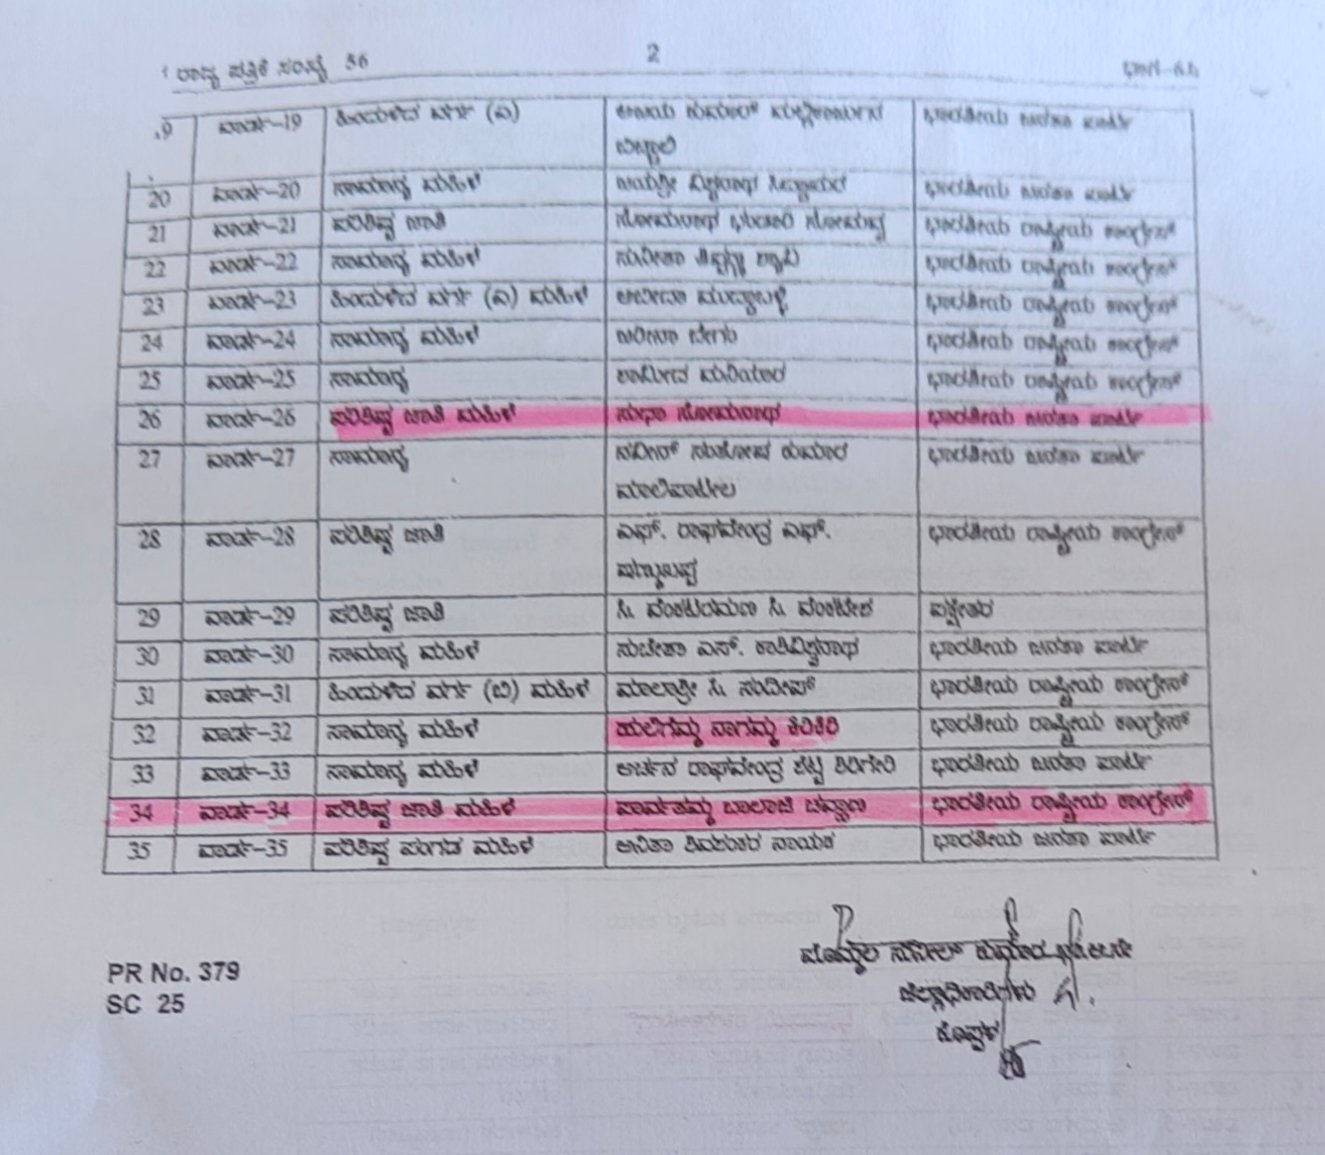 ರಾಜ್ಯ ಪತ್ರಿಕೆ ಸಂಖ್ಯೆ 36 2 ಭಾಗ-6ಎ
19 ವಾರ್ಡ್-19 ಹಿಂದುಳಿದ ವರ್ಗ (ಎ) ಅಜಯ ಕುಮಾರ್ ಭಾರತೀಯ ಜನತಾ ಪಾರ್ಟಿ
20 ವಾರ್ಡ್-20 ಸಾಮಾನ್ಯ ಮಹಿಳೆ ಜಯಶ್ರೀ ವಿಶ್ವನಾಥ ಸಿದ್ದಾಪುರ ಭಾರತೀಯ ಜನತಾ ಪಾರ್ಟಿ
21 ವಾರ್ಡ್-21 ಪರಿಶಿಷ್ಟ ಜಾತಿ ಸೋಮನಾಥ ಭಂಡಾರಿ ಸೋಮಪ್ಪ ಭಾರತೀಯ ರಾಷ್ಟ್ರೀಯ ಕಾಂಗ್ರೇಸ್
22 ವಾರ್ಡ್-22 ಸಾಮಾನ್ಯ ಮಹಿಳೆ ಸುನೀತಾ ಭಾರತೀಯ ರಾಷ್ಟ್ರೀಯ ಕಾಂಗ್ರೇಸ್
23 ವಾರ್ಡ್-23 ಹಿಂದುಳಿದ ವರ್ಗ (ಎ) ಮಹಿಳೆ ಭಾರತೀಯ ರಾಷ್ಟ್ರೀಯ ಕಾಂಗ್ರೇಸ್
24 ವಾರ್ಡ್-24 ಸಾಮಾನ್ಯ ಮಹಿಳೆ ಬೇಗಂ ಭಾರತೀಯ ರಾಷ್ಟ್ರೀಯ ಕಾಂಗ್ರೇಸ್
25 ವಾರ್ಡ್-25 ಸಾಮಾನ್ಯ ಮನಿಯಾರ ಭಾರತೀಯ ರಾಷ್ಟ್ರೀಯ ಕಾಂಗ್ರೇಸ್
26 ವಾರ್ಡ್-26 ಪರಿಶಿಷ್ಟ ಜಾತಿ ಮಹಿಳೆ ಸುಧಾ ಸೋಮನಾಥ ಭಾರತೀಯ ಜನತಾ ಪಾರ್ಟಿ
27 ವಾರ್ಡ್-27 ಸಾಮಾನ್ಯ ನವೀನ್ ಸಂತೋಷ ಕುಮಾರ ಭಾರತೀಯ ಜನತಾ ಪಾರ್ಟಿ
ಮಾಲಿಪಾಟೀಲ
28 ವಾರ್ಡ್-28 ಪರಿಶಿಷ್ಟ ಜಾತಿ ಎಫ್. ರಾಘವೇಂದ್ರ ಎಫ್. ಭಾರತೀಯ ರಾಷ್ಟ್ರೀಯ ಕಾಂಗ್ರೇಸ್
ಷಣ್ಮುಖಪ್ಪ
29 ವಾರ್ಡ್-29 ಪರಿಶಿಷ್ಟ ಜಾತಿ ಸಿ. ವೆಂಕಟರಮಣ ಸಿ. ವೆಂಕಟೇಶ ಪಕ್ಷೇತರ
30 ವಾರ್ಡ್-30 ಸಾಮಾನ್ಯ ಮಹಿಳೆ ಸುಚೇತಾ ಎಸ್. ಕಾಶಿವಿಶ್ವನಾಥ ಭಾರತೀಯ ಜನತಾ ಪಾರ್ಟಿ
31 ವಾರ್ಡ್-31 ಹಿಂದುಳಿದ ವರ್ಗ (ಬಿ) ಮಹಿಳೆ ಮಾಲಾಶ್ರೀ ಸಿ. ಸಂದೀಪ್ ಭಾರತೀಯ ರಾಷ್ಟ್ರೀಯ ಕಾಂಗ್ರೇಸ್
32 ವಾರ್ಡ್-32 ಸಾಮಾನ್ಯ ಮಹಿಳೆ ಹುಲಿಗೆಮ್ಮ ನಾಗಮ್ಮ ಕಿರಿಕಿರಿ ಭಾರತೀಯ ರಾಷ್ಟ್ರೀಯ ಕಾಂಗ್ರೇಸ್
33 ವಾರ್ಡ್-33 ಸಾಮಾನ್ಯ ಮಹಿಳೆ ಅರ್ಚನ ರಾಘವೇಂದ್ರ ಶೆಟ್ಟಿ ಶಿರಿಗೇರಿ ಭಾರತೀಯ ಜನತಾ ಪಾರ್ಟಿ
34 ವಾರ್ಡ್-34 ಪರಿಶಿಷ್ಟ ಜಾತಿ ಮಹಿಳೆ ಪಾರ್ವತಮ್ಮ ಬಾಲಾಜಿ ಚವ್ಹಾಣ ಭಾರತೀಯ ರಾಷ್ಟ್ರೀಯ ಕಾಂಗ್ರೇಸ್
35 ವಾರ್ಡ್-35 ಪರಿಶಿಷ್ಟ ಪಂಗಡ ಮಹಿಳೆ ಅನಿತಾ ಶಿವಶಂಕರ ನಾಯಕ ಭಾರತೀಯ ಜನತಾ ಪಾರ್ಟಿ
ಪೊಮ್ಮಲ ಸುನೀಲ್ ಕುಮಾರ
PR No. 379
ಜಿಲ್ಲಾಧಿಕಾರಿಗಳು
SC 25
ಕೊಪ್ಪಳ